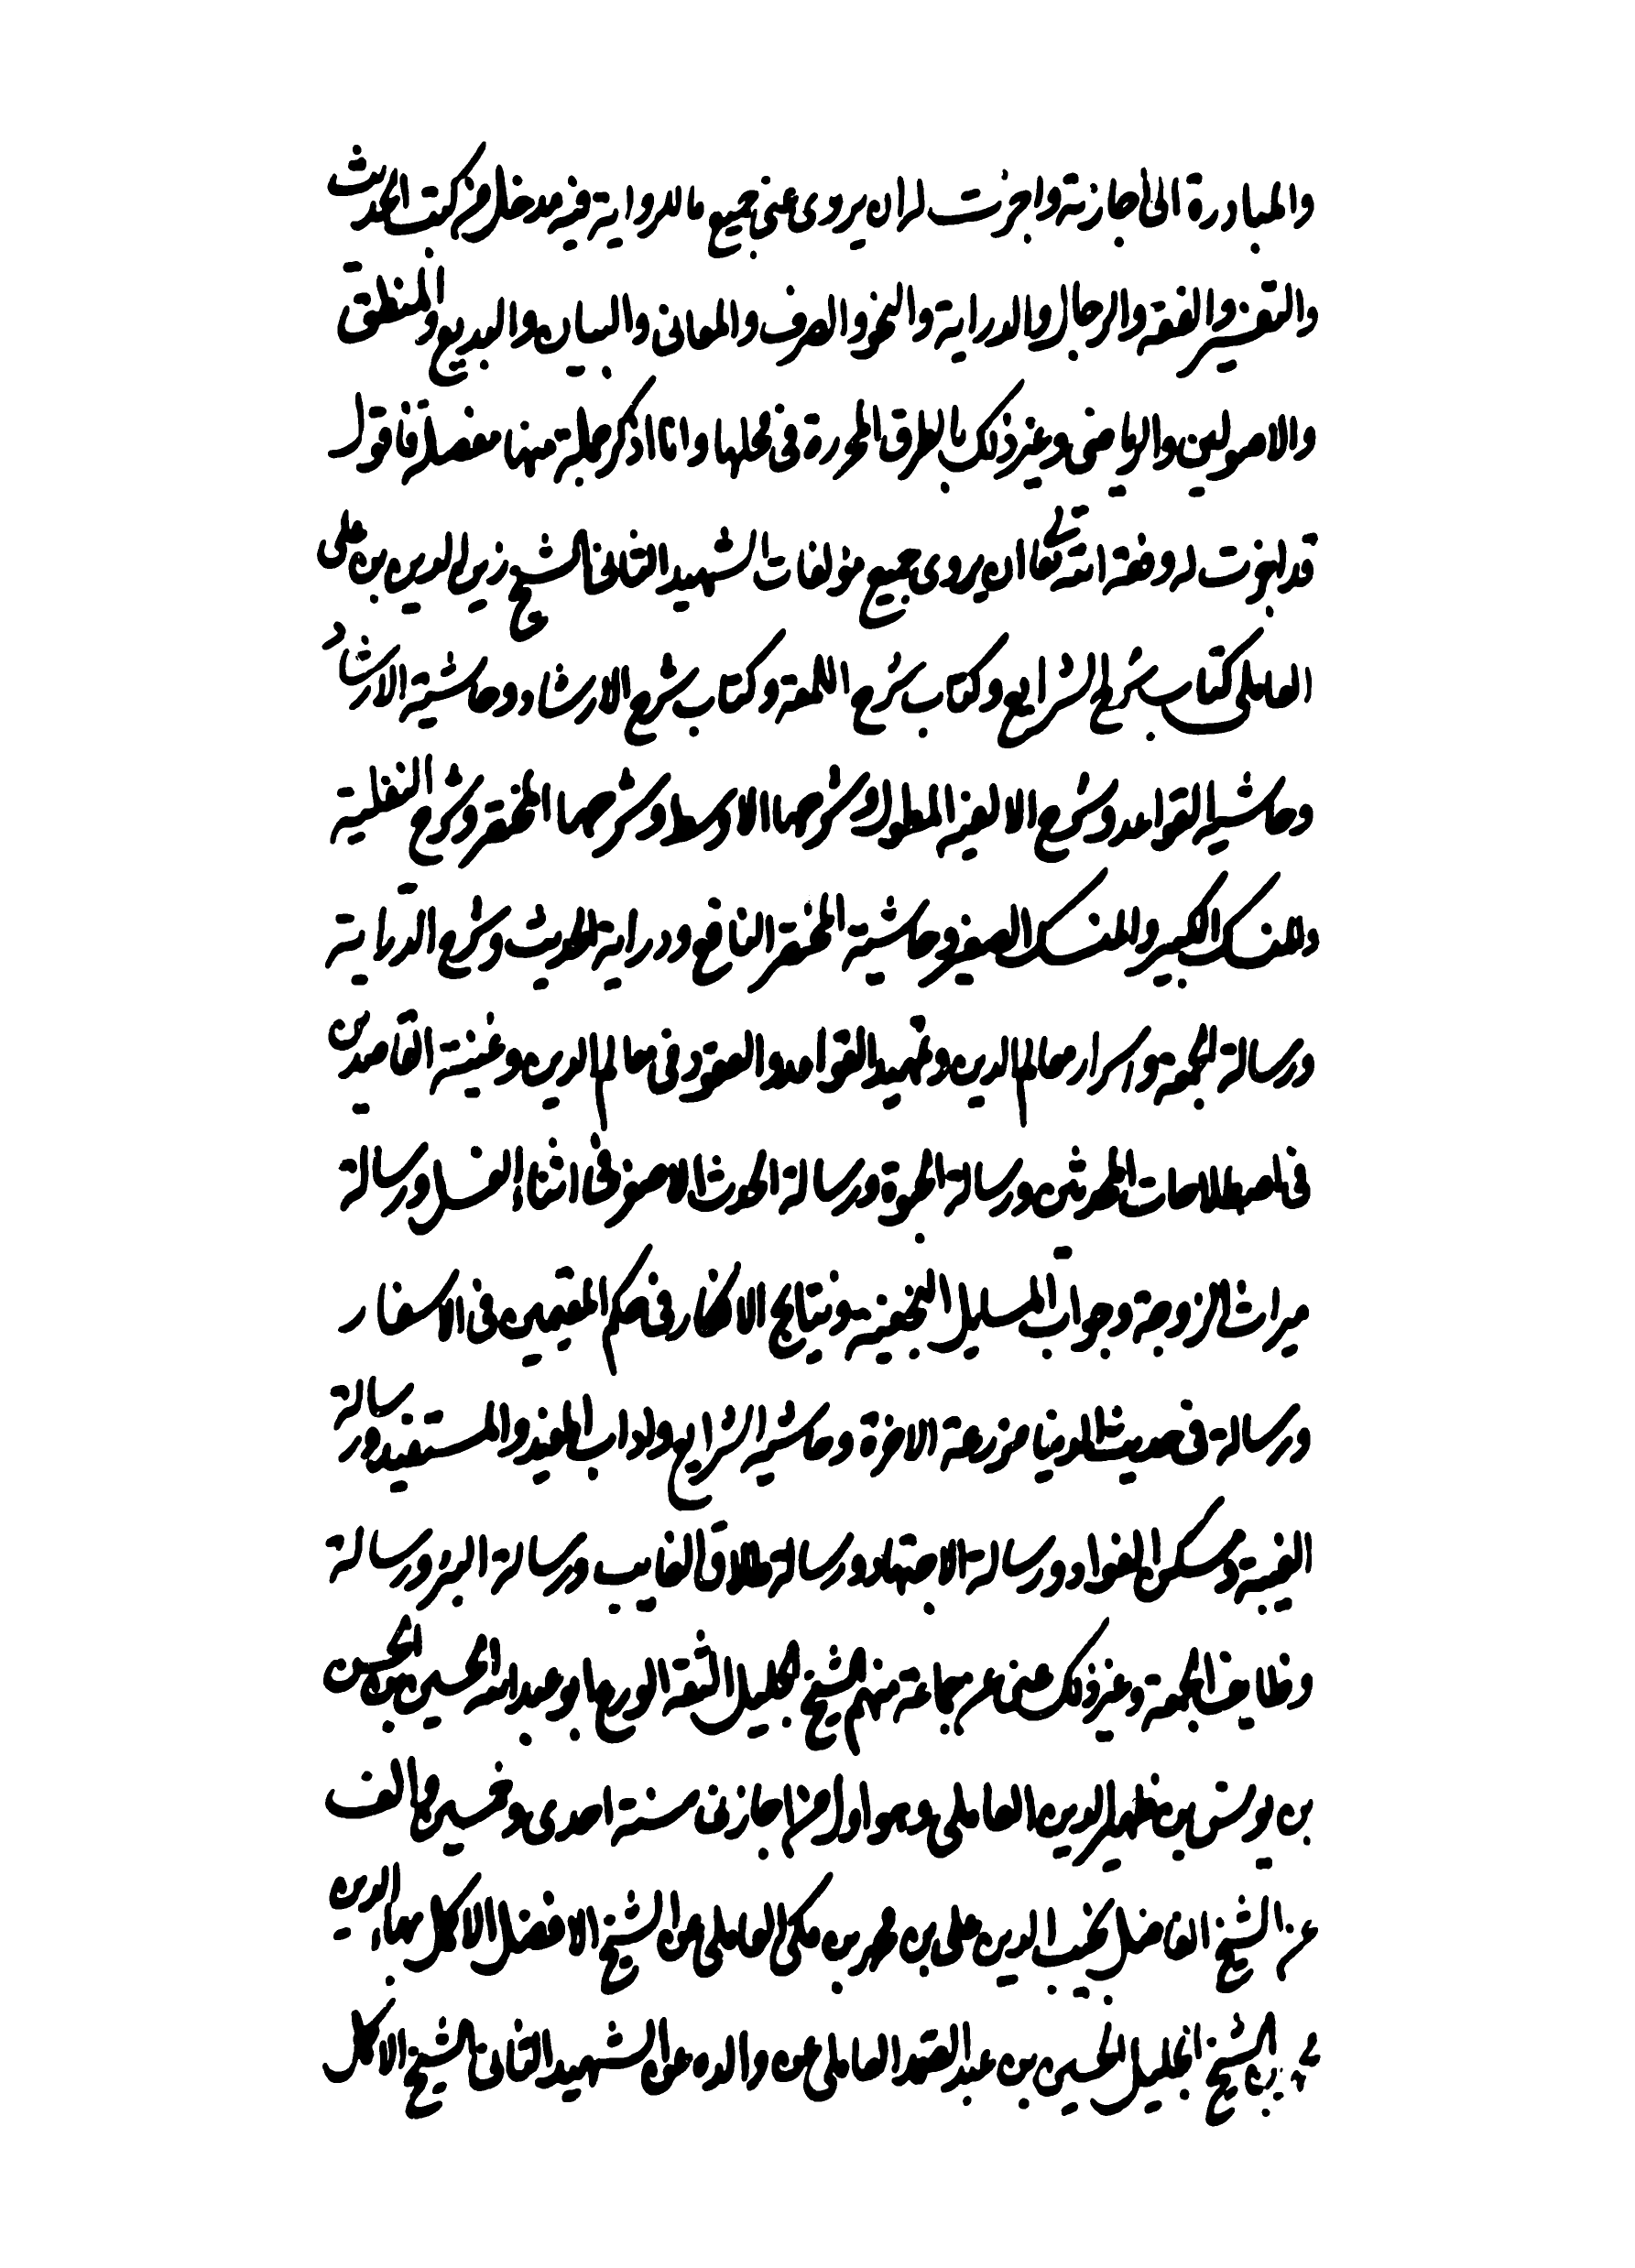 والمبادرة الى اجازته واجزت له ان يروى عنى جميع ما للرواية فيه مدخل من كتب الحديث
والتفسير والفقه والرجال والدراية والنحو والصرف والمعانى والبيان والبديع والمنطق
والاصولين والرياضى وغير ذلك بالطرق المحررة فى محلها وانا اذكر جملة منها مفصلة فاقول
قد اجزت له وفقه الله تعا ان يروى جميع مؤلفات الشهيد الثانى الشيخ زين الدين بن على
العاملى كتاب شرح الشرايع وكتاب شرح اللمعة وكتاب شرح الارشاد وحاشية الارشاد
وحاشية القواعد وشرح الالفية المطول وشرحها الاوسط وشرحها المختصر وشرح النفلية
والمنسك الكبير والمنسك الصغير وحاشية المختصر النافع ودراية الحديث وشرح الدراية
ورسالة الجمعة واسرار معالم الدين وتمهيد القواعد والعقود فى معالم الدين وغنية القاصدين
فى اصطلاحات المحدثين ورسالة الحبوة ورسالة الحدث الاصغر فى اثناء الغسل ورسالة
ميراث الزوجة وجواب المسايل النجفية ونتايج الافكار فى حكم المقيمين فى الاسفار
ورسالة فى حديث الدنيا مزرعة الاخرة وحاشية الشرايع واداب المفيد والمستفيد ورسالة
الغيبة ومسكن الفؤاد ورسالة الاجتهاد ورسالة طلاق الغايب ورسالة البئر ورسالة
وظايف الجمعة وغير ذلك عنى عن جماعة منهم الشيخ الجليل الثقة الورع ابو عبد الله الحسين بن الحسن
بن يونس بن ظهير الدين العاملى وهو اول من اجازنى سنة احدى وخمسين والف
عن الشيخ الفاضل نجيب الدين على بن محمد بن مكى العاملى عن الشيخ الافضل الاكمل بهاء الدين
محمد بن الشيخ الجليل الحسين بن عبد الصمد العاملى عن والده عن الشهيد الثانى الشيخ الاكمل